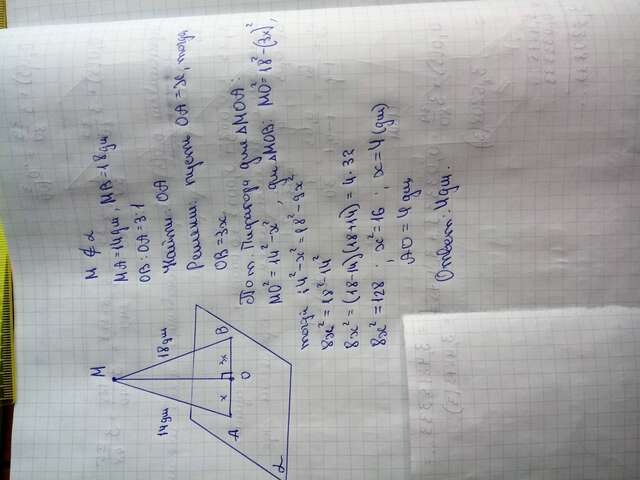 M ∉ α
MA = 14 дм, MB = 18 дм
OB : OA = 3:1
Найти: OA
Решение: пусть OA = x, тогда
OB = 3x
По т. Пифагора для ΔMOA:
MO² = 14² - x², для ΔMOB: MO² = 18² - (3x)²,
тогда 14² - x² = 18² - 9x²
8x² = 18² - 14²
8x² = (18-14)(18+14) = 4·32
8x² = 128; x² = 16; x = 4 (дм)
AO = 4 дм
Ответ: 4 дм.
M
14 дм
18 дм
A
x
3x
B
O
α